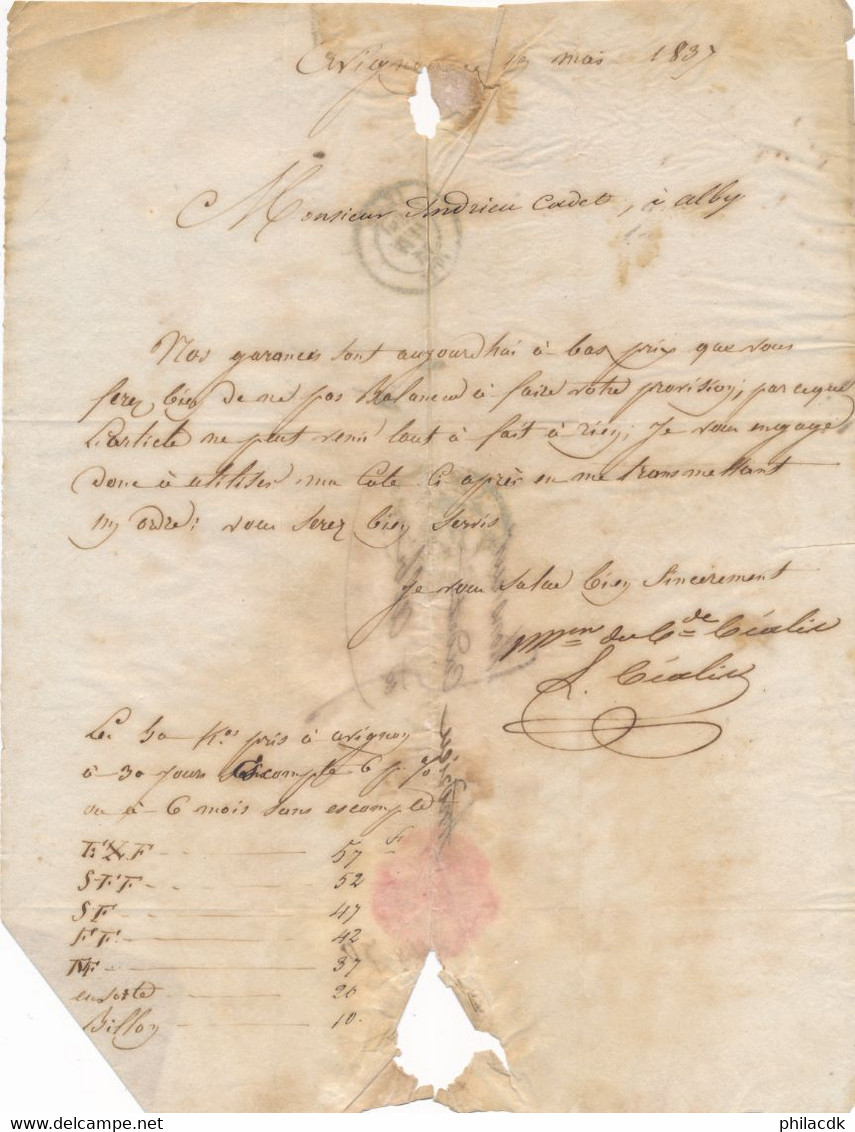 Avignon 12 mai 1837
Monsieur Andrieu Cadet, à alby
Nos garances sont aujourdhui à bas prix que vous
ferez bien de ne pas Balancer à faire votre provision, parceque
L'article ne peut venir tout à fait à rien; Je vous engage
donc à utiliser ma Cote Ci après en me transmettant
un ordre; vous serez bien servis
Je vous salue bien sincèrement
du C^de
Les 50 K^os pris à avignon
à 30 Jours escompte 6 p %
ou à 6 mois sans escompte
EXF - - - 57 f
SFF - - - 52
SF - - - 47
FF - - - 42
MF - - - 37
ensorte - - - 20
Billon - - - 10.
www.delcampe.net
philacdk